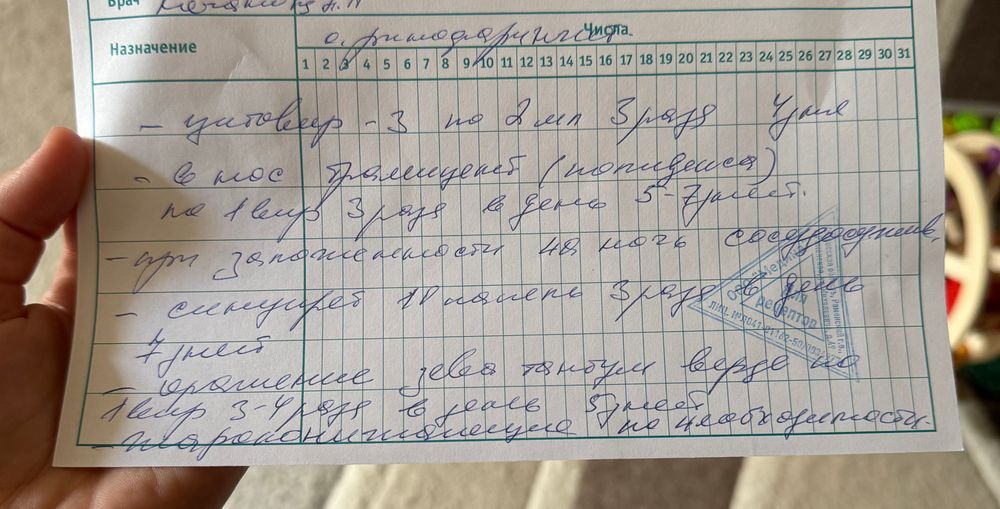 Врач
о. ринофарингит
Назначение Числа
1 2 3 4 5 6 7 8 9 10 11 12 13 14 15 16 17 18 19 20 21 22 23 24 25 26 27 28 29 30 31
- цитовир - 3 по 2 мл 3 раза 4 дня
- в нос (полидекса)
по 1 впр 3 раза в день 5-7 дней.
- при заложенности на ночь сосудосужив.
- синупрет 18 капель 3 раза в день
7 дней
- орошение зева тантум верде по
1 впр 3-4 раза в день 5 дней
- жаропонижающие по необходимости.